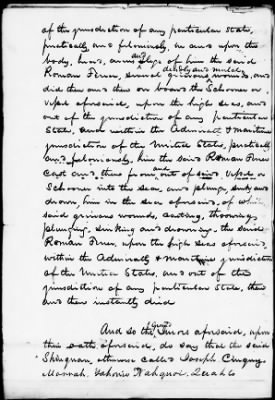 of the jurisdiction of any particular State,
piratically and feloniously, in and upon the
body, head, arms & legs of him the said
Roman several grievous wounds, and
deadly and
did then and there on board the Schooner or
Vessel aforesaid, upon the high seas, and
out of the jurisdiction of any particular
State, and within the Admiralty & maritime
jurisdiction of the United States, piratically
and feloniously, him the said Roman
Cast and throw from and out of said Vessel or
Schooner into the sea, and plunge, sink and
drown, him in the sea aforesaid, of which
said grievous wounds, casting, throwing,
plunging, sinking and drowning, the said
Roman upon the high seas aforesaid,
within the Admiralty & maritime jurisdiction
of the United States, and out of the
jurisdiction of any particular State, then
and there instantly died
And so the Grand Jurors aforesaid, upon
their oath aforesaid, do say that the said
otherwise called Joseph